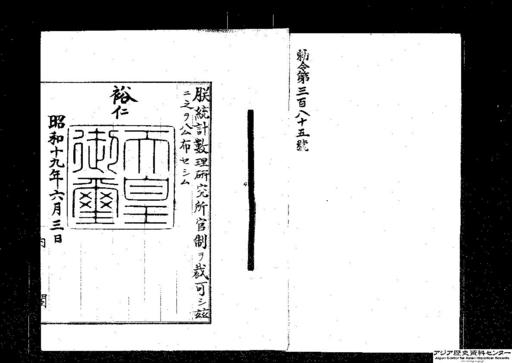 勅令第三百八十五號
朕統計数理研究所官制ヲ裁可シ茲
ニ之ヲ公布セシム
裕仁
天皇
御璽
昭和十九年六月三日
内閣
アジア歴史資料センター
Japan Center for Asian Historical Records